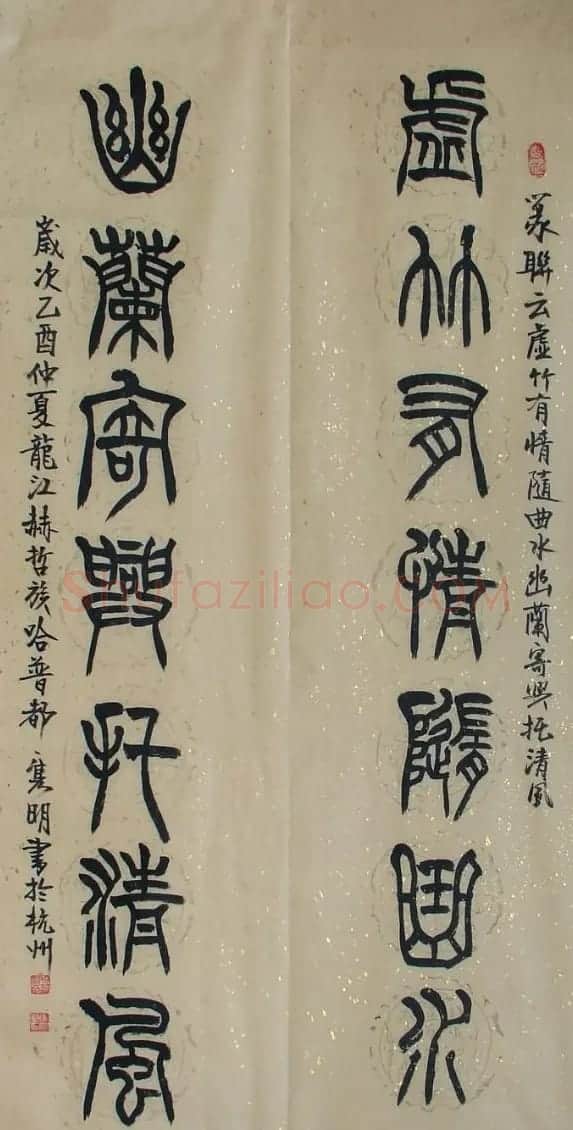 篆聯云虛竹有情隨曲水幽蘭寄興托清風
虛竹有情隨曲水
幽蘭寄興托清風
歲次乙酉仲夏龍江赫哲族哈普都雋明書於杭州
Shufaziliao.com